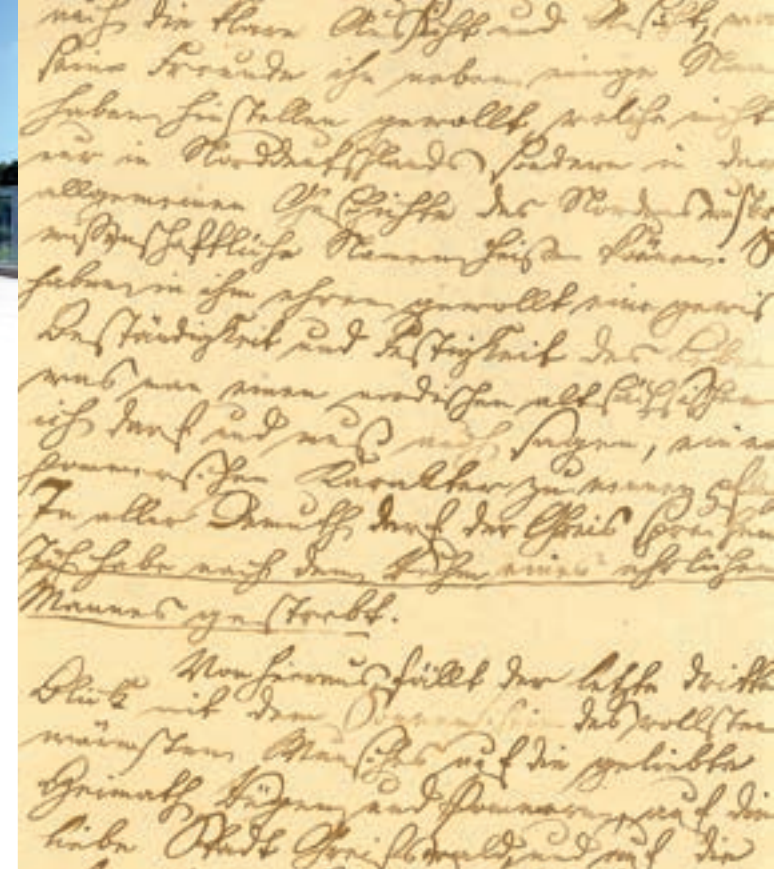 mich die klare Aussicht und
seine Freunde ihn neben einige
haben hinstellen gewollt, welche nicht
nur in Norddeutschlands sondern in der
allgemeinen Geschichte des Nordens
wissenschaftliche Namen heißen können. S
haben in ihm ehren gewollt eine gewis
Beständigkeit und Festigkeit des
was man einen nordischen altsächsischen
ich darf und muß auch sagen, einen
pommerschen Karakter zu nennen
In aller Demuth darf der Greis sprechen
Ich habe nach dem Ruhm eines ehrlichen
Mannes gestrebt.
Von hieraus fällt der letzte dritte
Blick mit dem Sonnenschein des vollsten
wärmsten Wunsches auf die geliebte
Heimath Rügen und Pommern, auf die
liebe Stadt Greifswald, und auf die